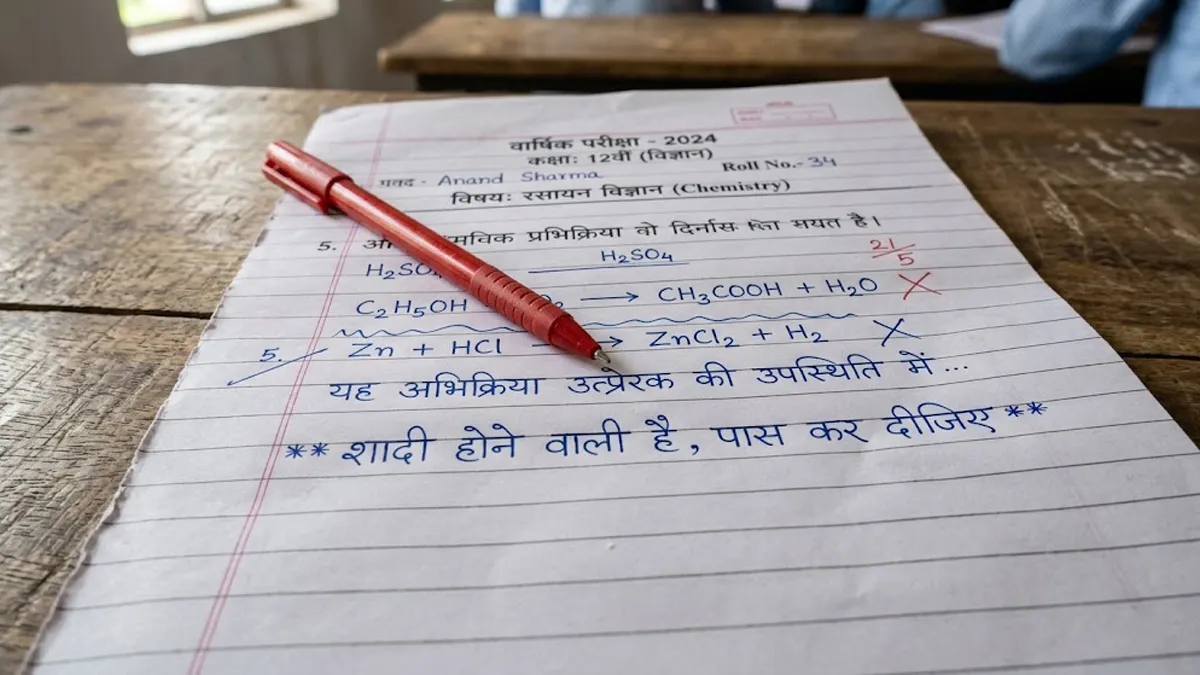 वार्षिक परीक्षा - 2024
कक्षाः 12वीं (विज्ञान)
Roll No.- 34
Anand Sharma
विषयः रसायन विज्ञान (Chemistry)
5. प्रभिक्रिया वो मयत है।
21/5
H₂SO₄
H₂SO
C₂H₅OH → CH₃COOH + H₂O ×
5. Zn + HCl → ZnCl₂ + H₂ ×
यह अभिक्रिया उत्प्रेरक की उपस्थिति में ...
** शादी होने वाली है, पास कर दीजिए **